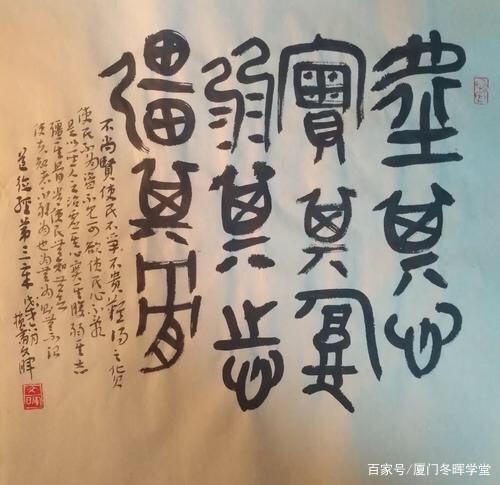 虛其心
實其腹
弱其志
彊其骨
不尚賢使民不爭不貴難得之貨
使民不為盜不見可欲使民心不亂
是以聖人之治虛其心實其腹弱其志
彊其骨常使民無知無欲
使夫知者不敢為也為無為則無不治
道德經第三章
百家号/厦门冬晖学堂